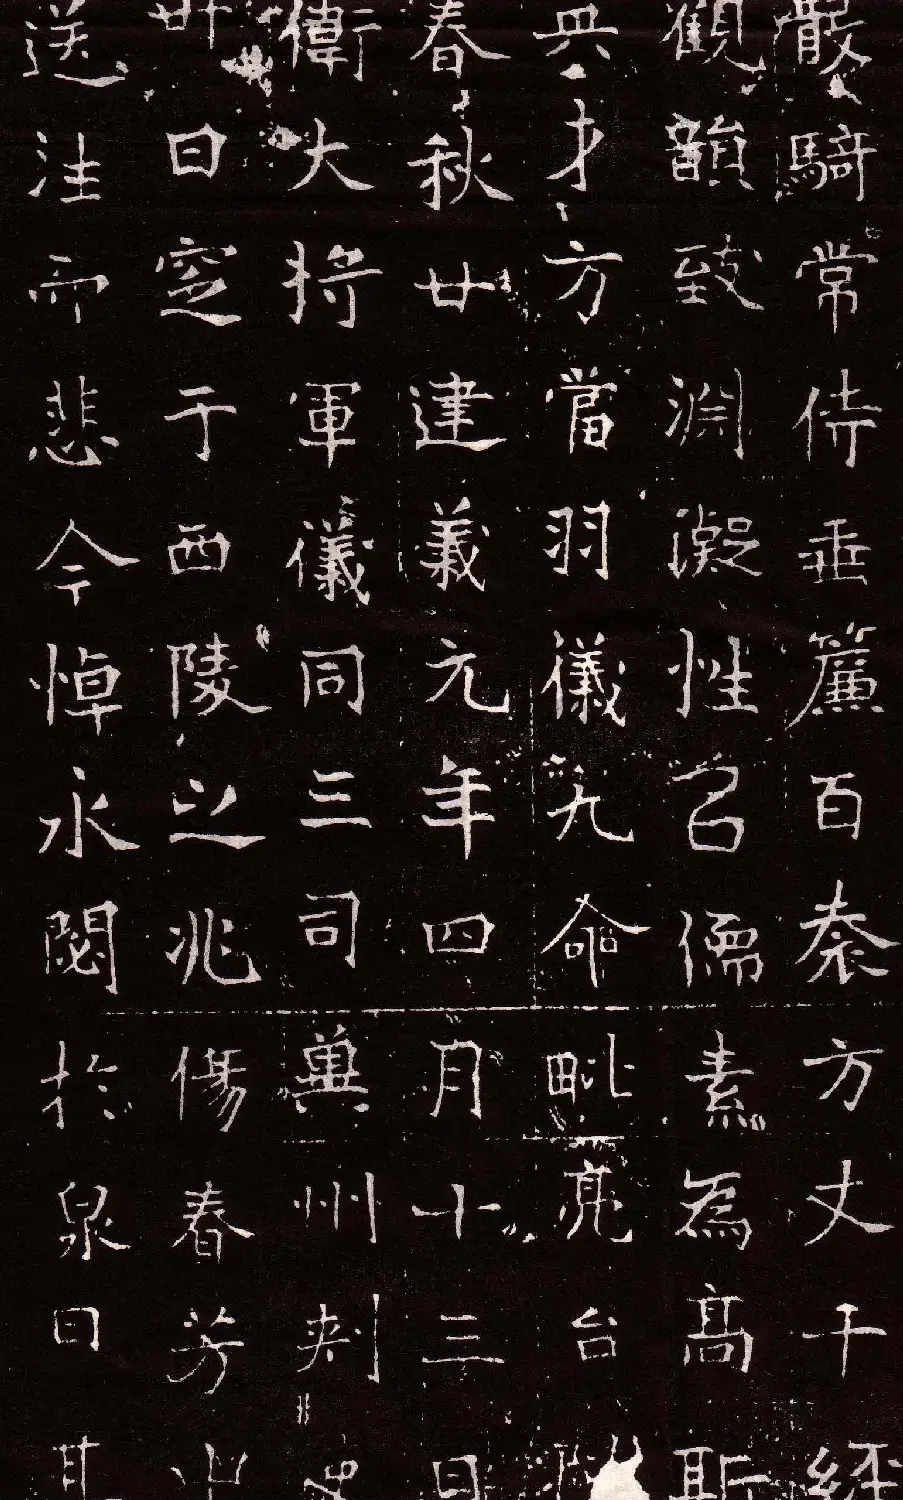 散騎常侍垂簾百氏方丈千經
觀韻致淵凝性以儒素為高斯
具才方當羽儀九命毗亮台
春秋廿建義元年四月十三日
衛大將軍儀同三司冀州刺史
卅日窆于西陵之兆傷春芳
送往而悲今悼永閟於泉日